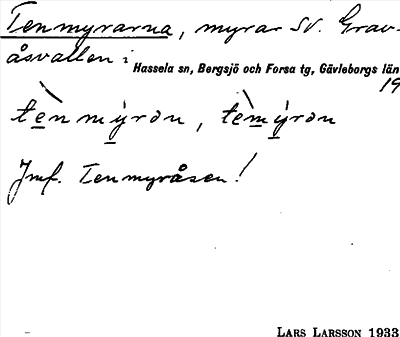 Tenmyrarna, myrar SV. Grav-
åsvallen i Hassela sn, Bergsjö och Forsa tg, Gävleborgs län
19
tènmýrən, tèmýrən
Jmf. Tenmyråsen!
LARS LARSSON 1933